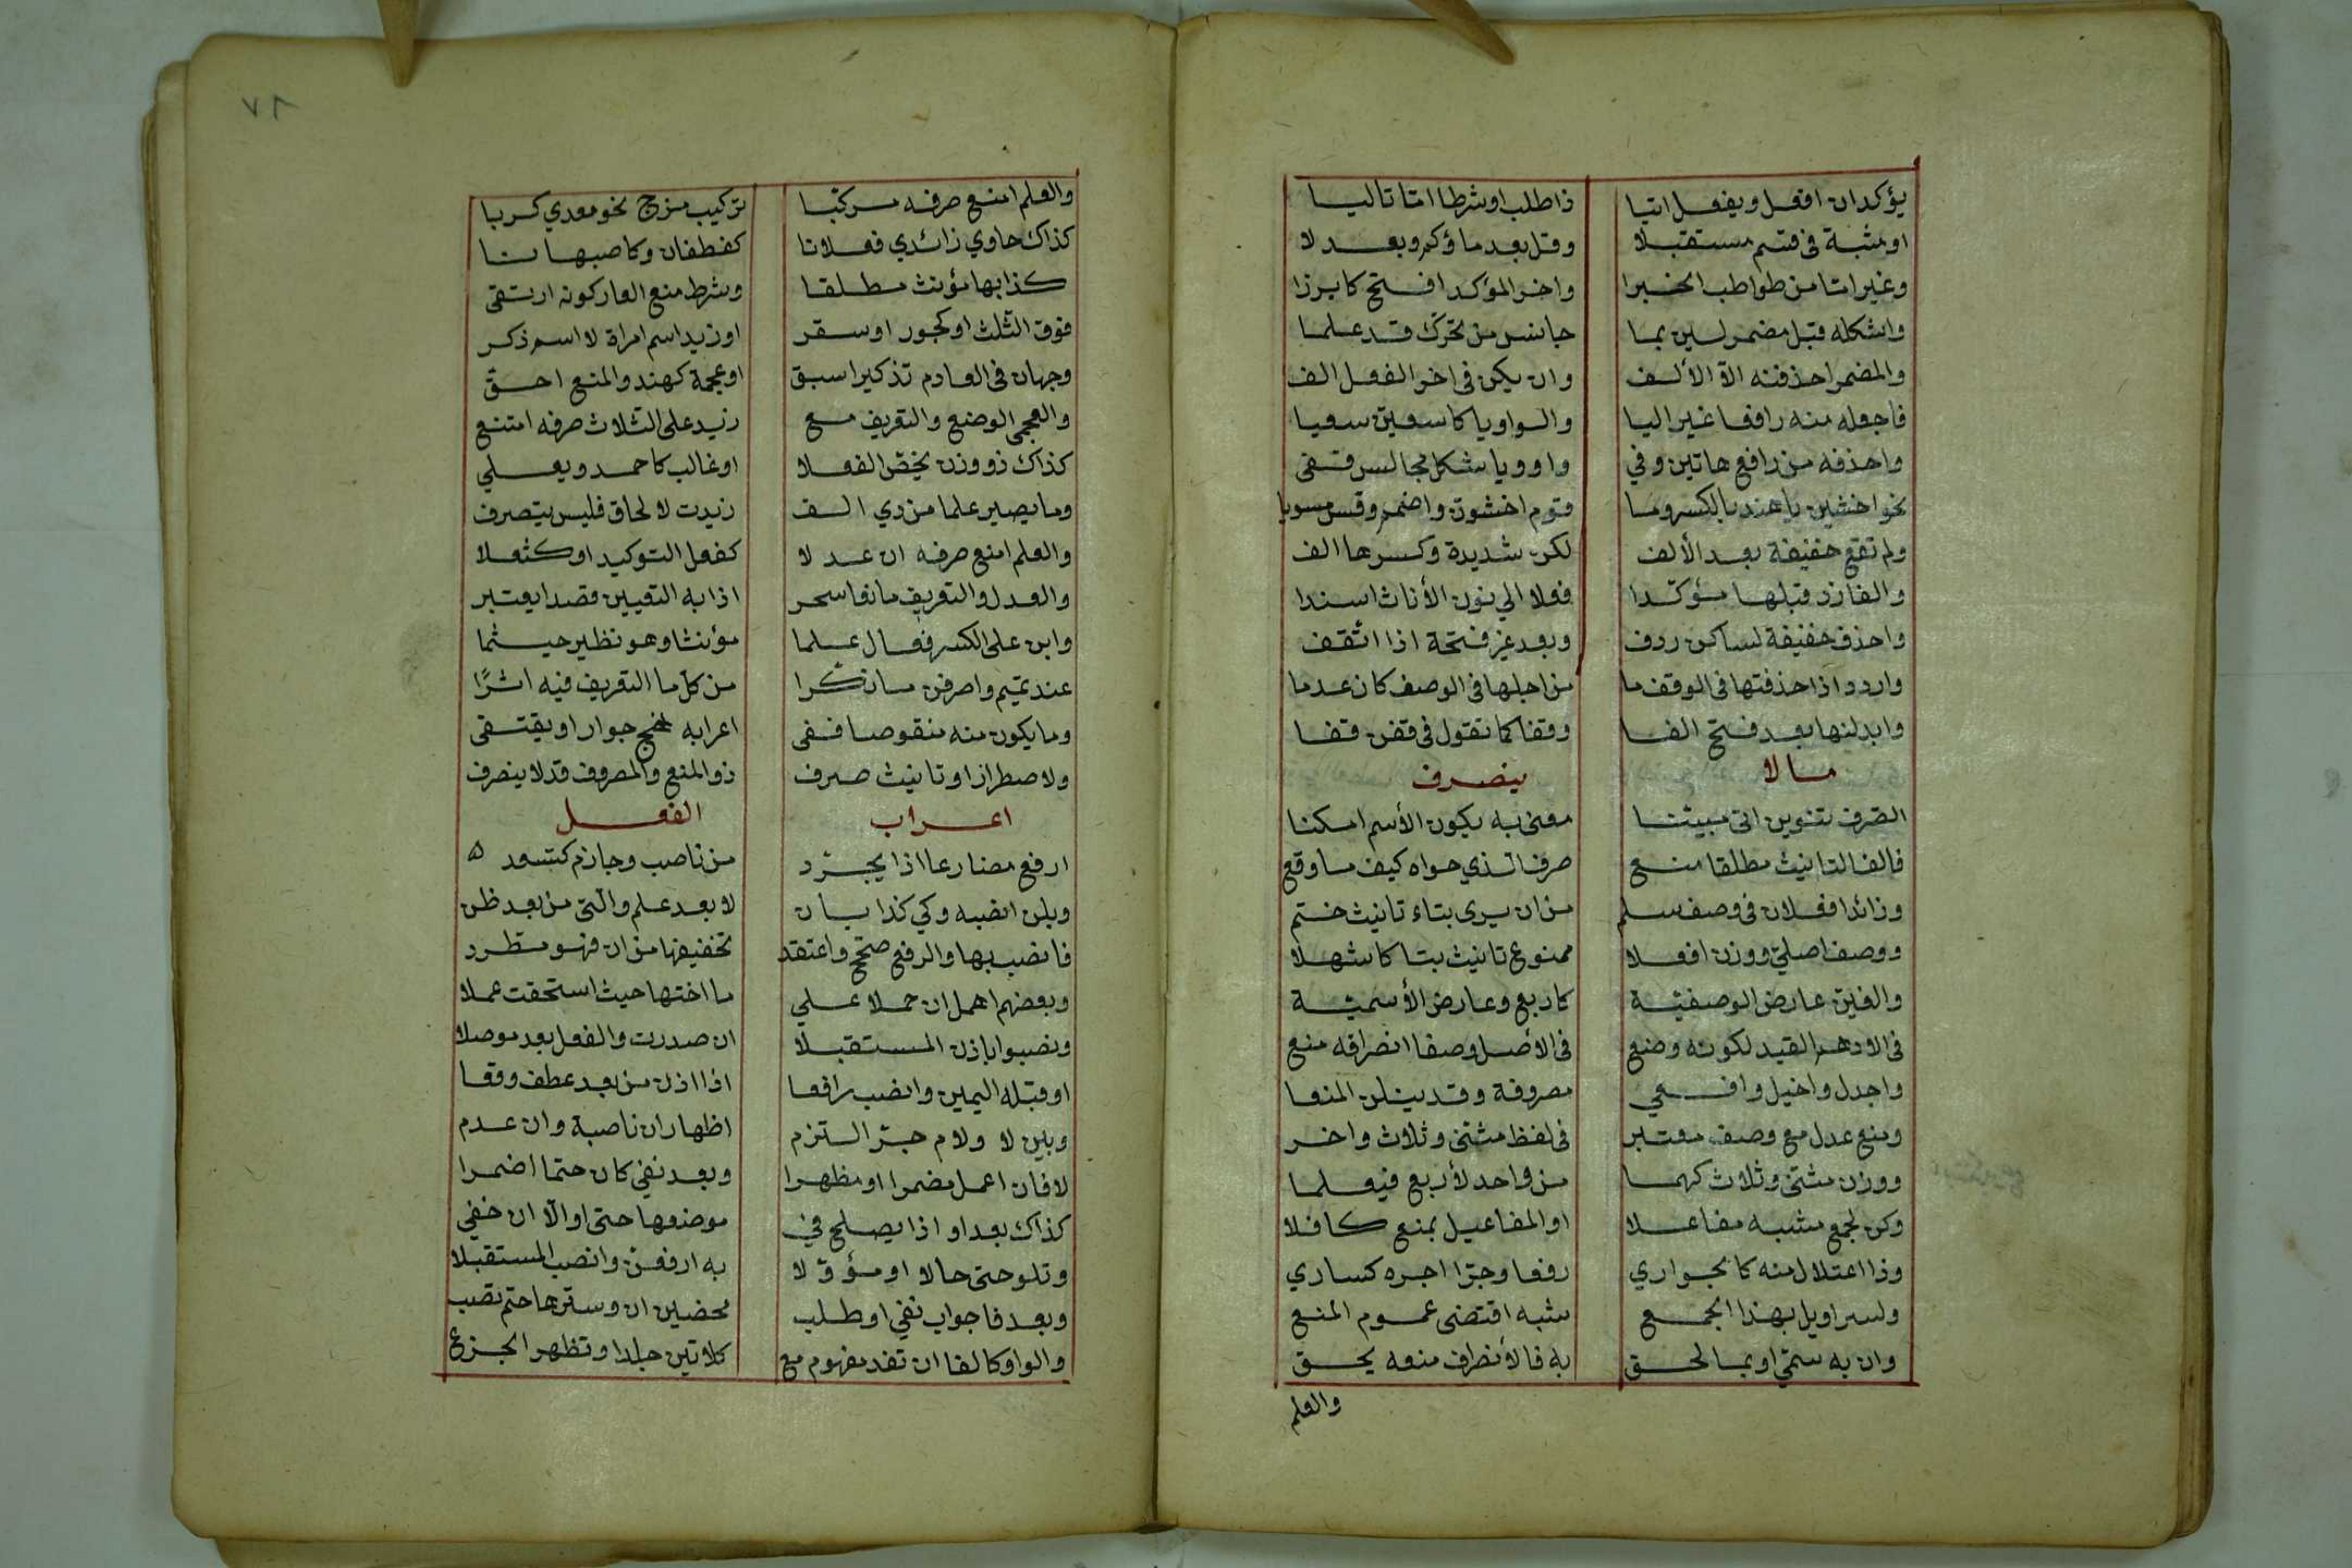 يؤكدان افعل ويفعل اتيا ذا طلب او شرطا اما تاليا
او مثبة في قسم مستقبلا وقل بعد ما ولم وبعد لا
وغير اما من طواطب الخبرا واخر المؤكد افتح كابرزا
واشكله قبل مضمر لين بما جانس من تحرك قد علما
والمضمر احذفنه الا الألف وان يكن في اخر الفعل الف
فاجعله منه رافعا غير اليا والواو يا كاسعين سعيا
واحذفه من رافع هاتين وفي واو ويا شكل مجالس قفى
نحو اخشين يا هند بالكسر وما قوم اخشون واضمم وقس مسويا
ولم تقع خفيفة بعد الألف لكن شديدة وكسرها الف
والفا زد قبلها مؤكدا فعلا الي نون الأناث اسندا
واحذف خفيفة لساكن ردف وبعد غير فتحة اذا اتقف
واردد اذا حذفتها في الوقف ما من اجلها في الوصف كان عدما
وابدلنها بعد فتح الفا وقفا كما تقول في قفن قفا
ما لا ينصرف
الصرف تنوين اتى مبيننا معنى به يكون الأسم امكنا
فالف التانيث مطلقا منع صرف الذي حواه كيف ما وقع
وزائدا فعلان في وصف سلم من ان يرى بتاء تانيث ختم
ووصف اصلي ووزن افعلا ممنوع تانيث بتا كاشهلا
والغين عارض الوصفية كاربع وعارض الأسمية
في الادهم القيد لكونه وضع في الأصل وصفا انصرافه منع
واجدل واخيل وافعي مصروفة وقد ينلن المنعا
ومنع عدل مع وصف معتبر في لفظ مثنى وثلاث واخر
ووزن مثنى وثلاث كهما من واحد لأربع فيعلما
وكن لجمع مشبه مفاعلا او المفاعيل بمنع كافلا
وذا اعتلال منه كالجواري رفعا وجرا اجره كساري
ولسراويل بهذا الجمع شبه اقتضى عموم المنع
وان به سمي او بما لحق به فالأنصراف منعه يحق
والعلم
٧٨
والعلم امنع صرفه مركبا تركيب مزج نحو معدي كربا
كذاك حاوي زائدي فعلانا كغطفان وكاصبهانا
كذا بها مؤنث مطلقا وشرط منع العار كونه ارتقى
فوق الثلث او كجور او سقر او زيد اسم امراة لا اسم ذكر
وجهان في العادم تذكيرا سبق او عجمة كهند والمنع احق
والعجمي الوضع والتعريف مع زيد على الثلاث صرفه امتنع
كذاك ذو وزن يخص الفعلا او غالب كاحمد ويعلي
وما يصير علما من ذي الف زيدت لالحاق فليس ينصرف
والعلم امنع صرفه ان عدلا كفعل التوكيد او كثعلا
والعدل والتعريف مانعا سحر اذا به التعيين قصدا يعتبر
وابن على الكسر فعال علما مؤنثا وهو نظير جيشما
عند تميم واصرفن ما نكرا من كل ما التعريف فيه اثرا
وما يكون منه منقوصا ففي اعرابه نهج جوار او يقتقى
ولاضطرار او تانيث صرف ذو المنع والمصروف قد لا ينصرف
اعراب الفعل
ارفع مضارعا اذا يجرد من ناصب وجازم كتسعد ه
وبلن انصبه وكي كذا بان لا بعد علم والتي من بعد ظن
فانصب بها والرفع صحح واعتقد تخفيفها من ان فهو مطرد
وبعضهم اهمل ان حملا علي ما اختها حيث استحقت عملا
ونصبوا باذن المستقبلا ان صدرت والفعل بعد موصلا
او قبله اليمين وانصب رافعا اذا اذن من بعد عطف وقعا
وبين لا ولام جر التزم اظهار ان ناصبة وان عدم
لا فان اعمل مضمرا او مظهرا وبعد نفي كان حتما اضمرا
كذاك بعد او اذا يصلح في موضعها حتى او الا ان خفي
وتلو حتى حالا او مؤولا به ارفعن وانصب المستقبلا
وبعد فا جواب نفي او طلب محضين ان وسترها حتم نصب
والواو كالفا ان تفد مفهوم مع كلا تين جلدا وتظهر الجزع